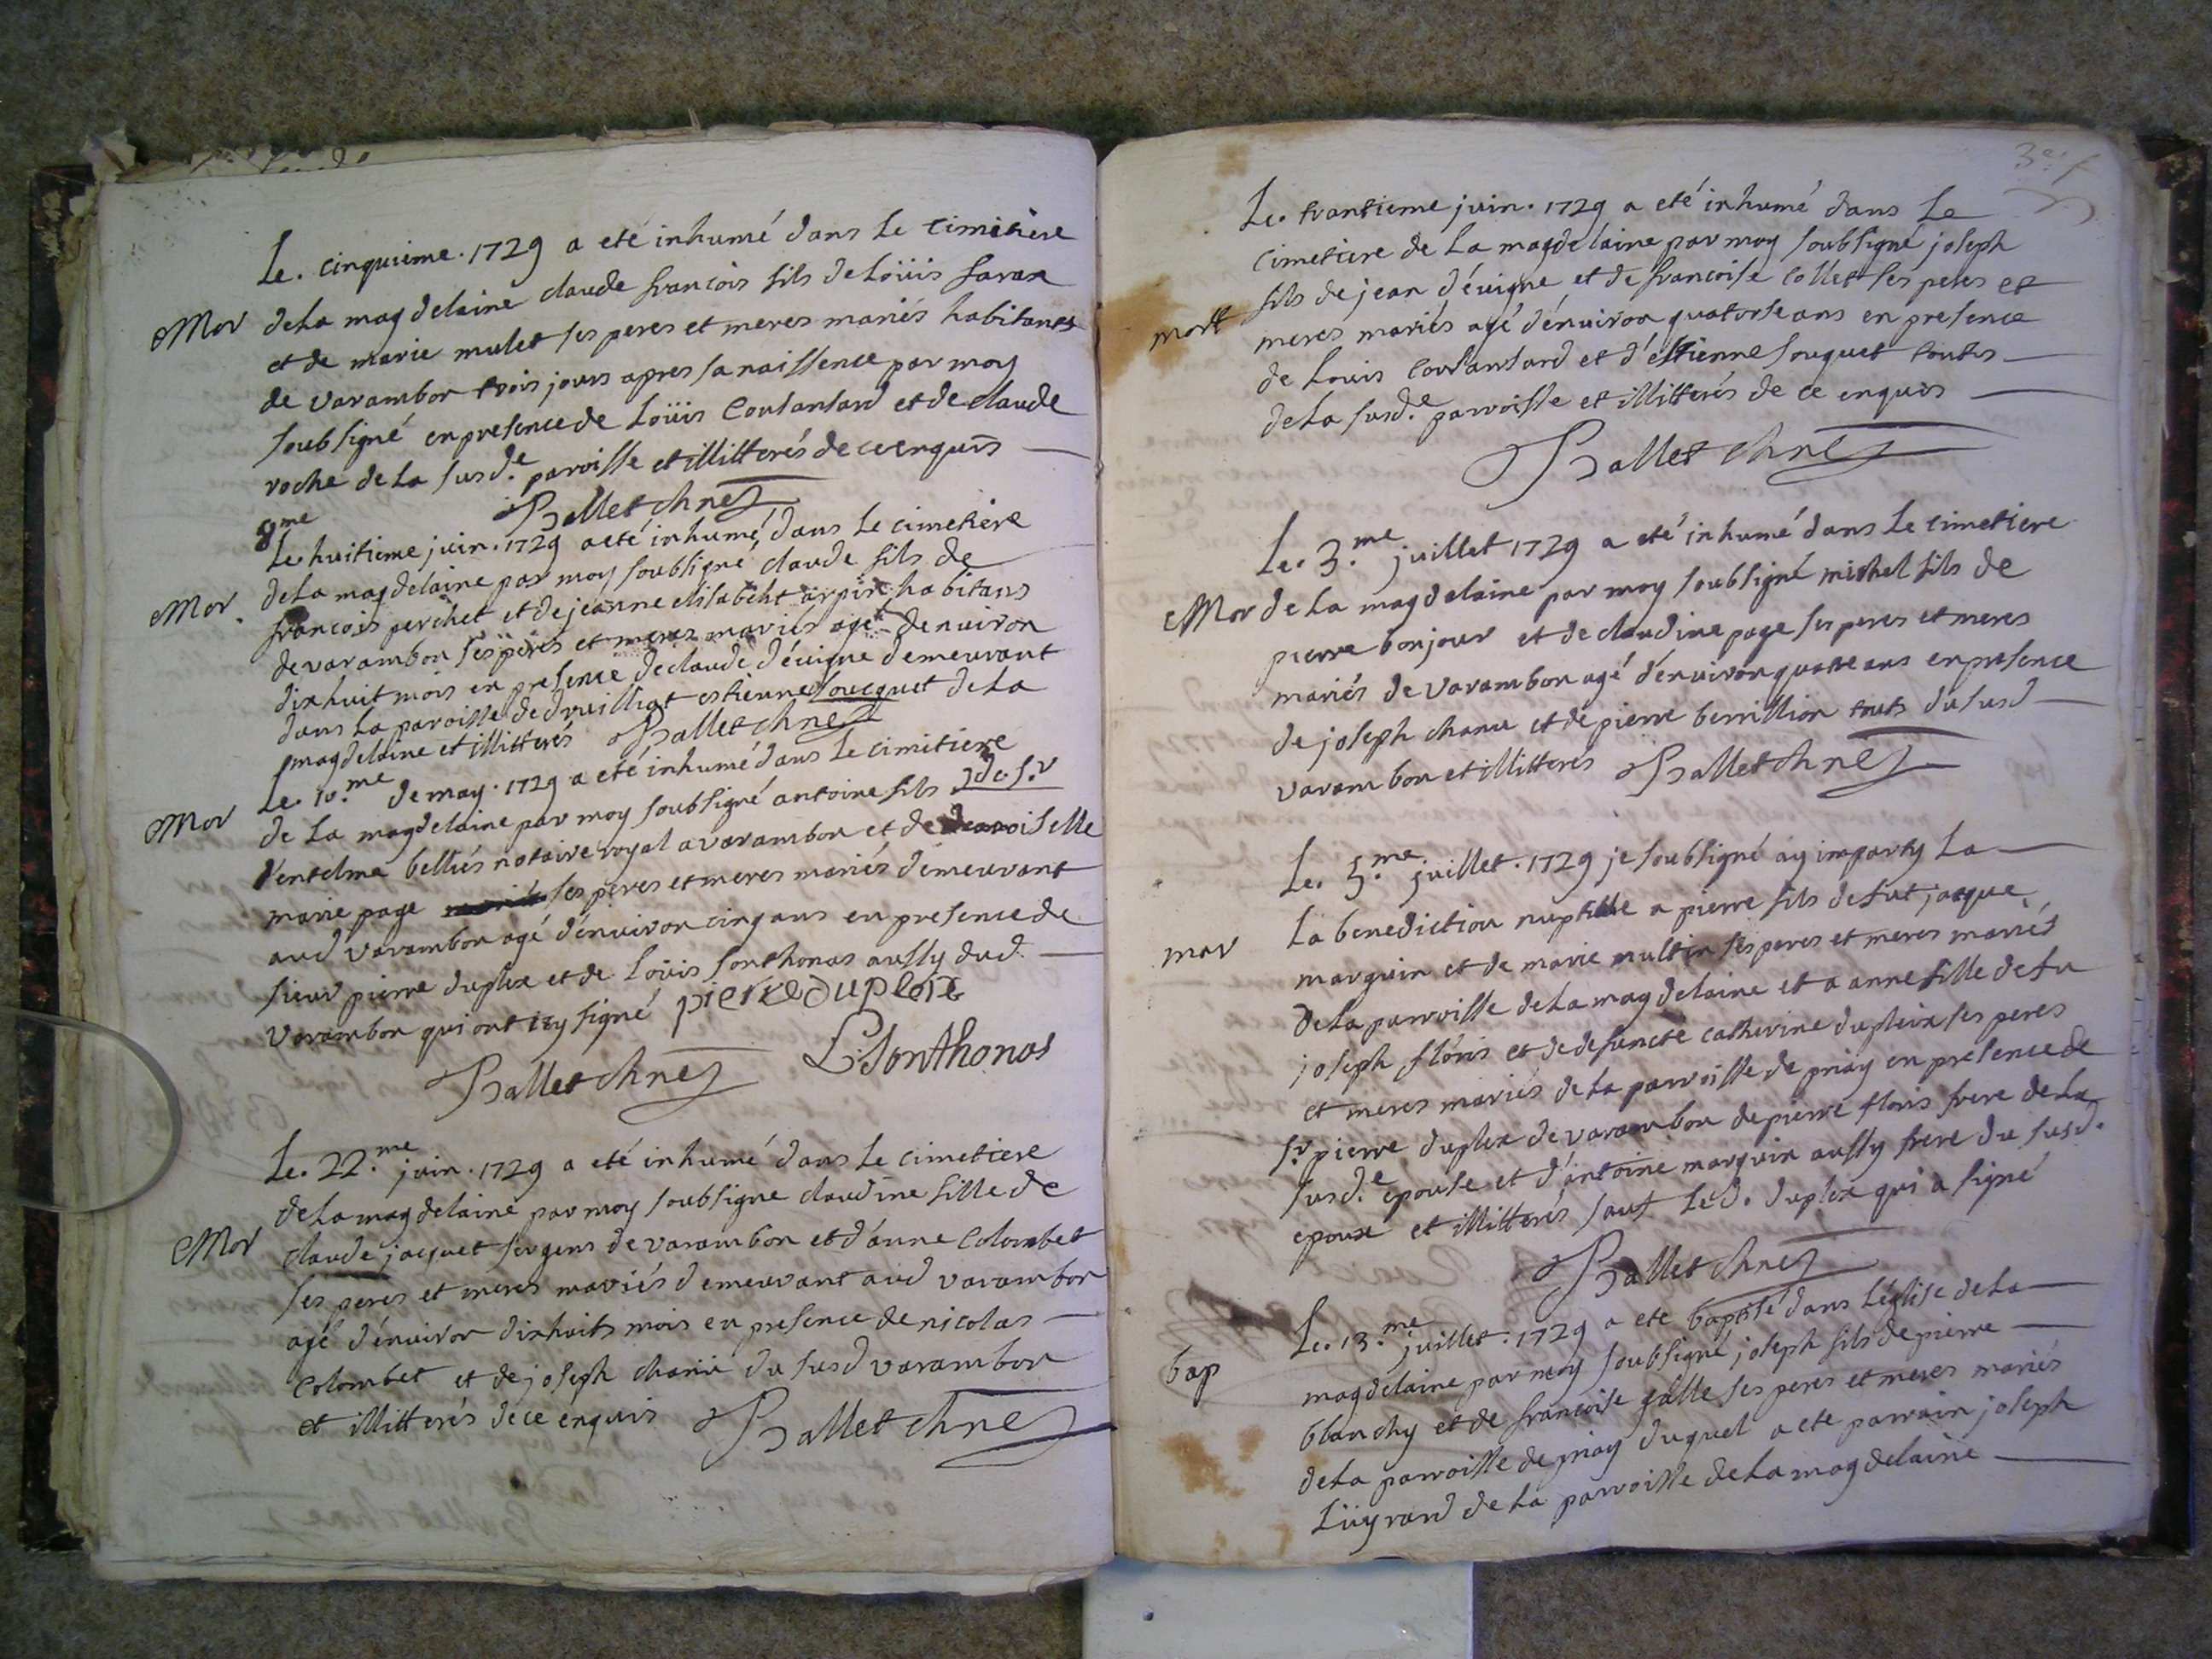 Le. cinquieme. 1729 a eté inhumé dans le cimitiere
Mor
dela magdelaine claude francois fils de Loüis Sarax
et de marie mulet ses peres et meres mariés habitants
de varambon trois jours apres sa naissence par moy
soubsigné en presence de Loüis Coutantard et de claude
roche de la susd.e paroisse et illitterés de ce enquis
Ballet chne
8me
Le huitieme juin. 1729 a eté inhumé dans le cimetiere
Mor.
dela magdelaine par moy soubsigné claude fils de
francois perchet et de jeanne elisabeht arpin habitans
de varambon ses peres et meres mariés agé denuiron
dixhuit mois en presence de claude d'éuigne demeurant
dans la paroisse de druilliat estienne foucquet dela
magdelaine et illitterés Ballet chne
Le. 10.me de may. 1729 a eté inhumé dans le cimitiere
Mor
de La magdelaine par moy soubsigné antoine fils de s.r
d'entelme belliés notaire royal a varambon et de demoiselle
marie page ses peres et meres mariés demeurant
aud varambon agé d'énuiron cinq ans en presence de
sieur pierre duplex et de Loüis sonthonas aussy dud.
varambon qui ont icy signé pierre duplex
Ballet chne L Sonthonas
Le. 22.me juin. 1729 a eté inhumé dans le cimetiere
dela magdelaine par moy soubsigne claudine fille de
Mor
claude jacquet sergens de varambon et d'ánne Colombet
ses peres et meres mariés demeurant aud varambon
agé d'énuiron dixhuits mois en presence de nicolas
Colombet et de joseph charui du susd varambon
et illitterés de ce enquis Ballet chne
Le. trantieme juin. 1729 a eté inhumé dans Le
cimetiere de La magdelaine par moy soubsigné joseph
fils de jean d'éuigne et de francoise Collet ses peres et
mort
meres mariés agé d'énuiron quatorse ans en presence
de Louis Coutantard et d'estienne fouquet touts
de La susd.e parroisse et illitterés de ce enquis
Ballet chne
Le. 3.me juillet 1729 a eté inhumé dans Le cimetiere
Mor
de La magdelaine par moy soubsigné michel fils de
pierre bonjour et de claudine page ses peres et meres
mariés de varambon agé d'énuiron quatre ans en presence
de joseph charui et de pierre berrillion touts du susd
varambon et illitterés Ballet chne
Le. 5.me juillet. 1729 je soubsigné ay imparty La
La benediction nuptialle a pierre fils de fut jacque
mar
marguin et de marie multin ses peres et meres mariés
de La parroisse de La magdelaine et a anne fille de fu
joseph flóris et de defuncte catherine dupleix ses peres
et meres mariés de La parroisse de priay en presence de
s.r pierre duplex de varambon de pierre floris frere de La
susd.e epouse et d'ántoine marguin aussy frere du susd.
epoux et illitterés sauf Led. duplex qui a signé
Ballet chne
Le. 13.me juillet. 1729 a ete baptisé dans L'église de La
bap
magdelaine par moy soubsigné joseph fils de pierre
blanchy et de francoise galle ses peres et meres mariés
de La parroisse de priay duquel a ete parrain joseph
Liugrand de La parroisse de La magdelaine